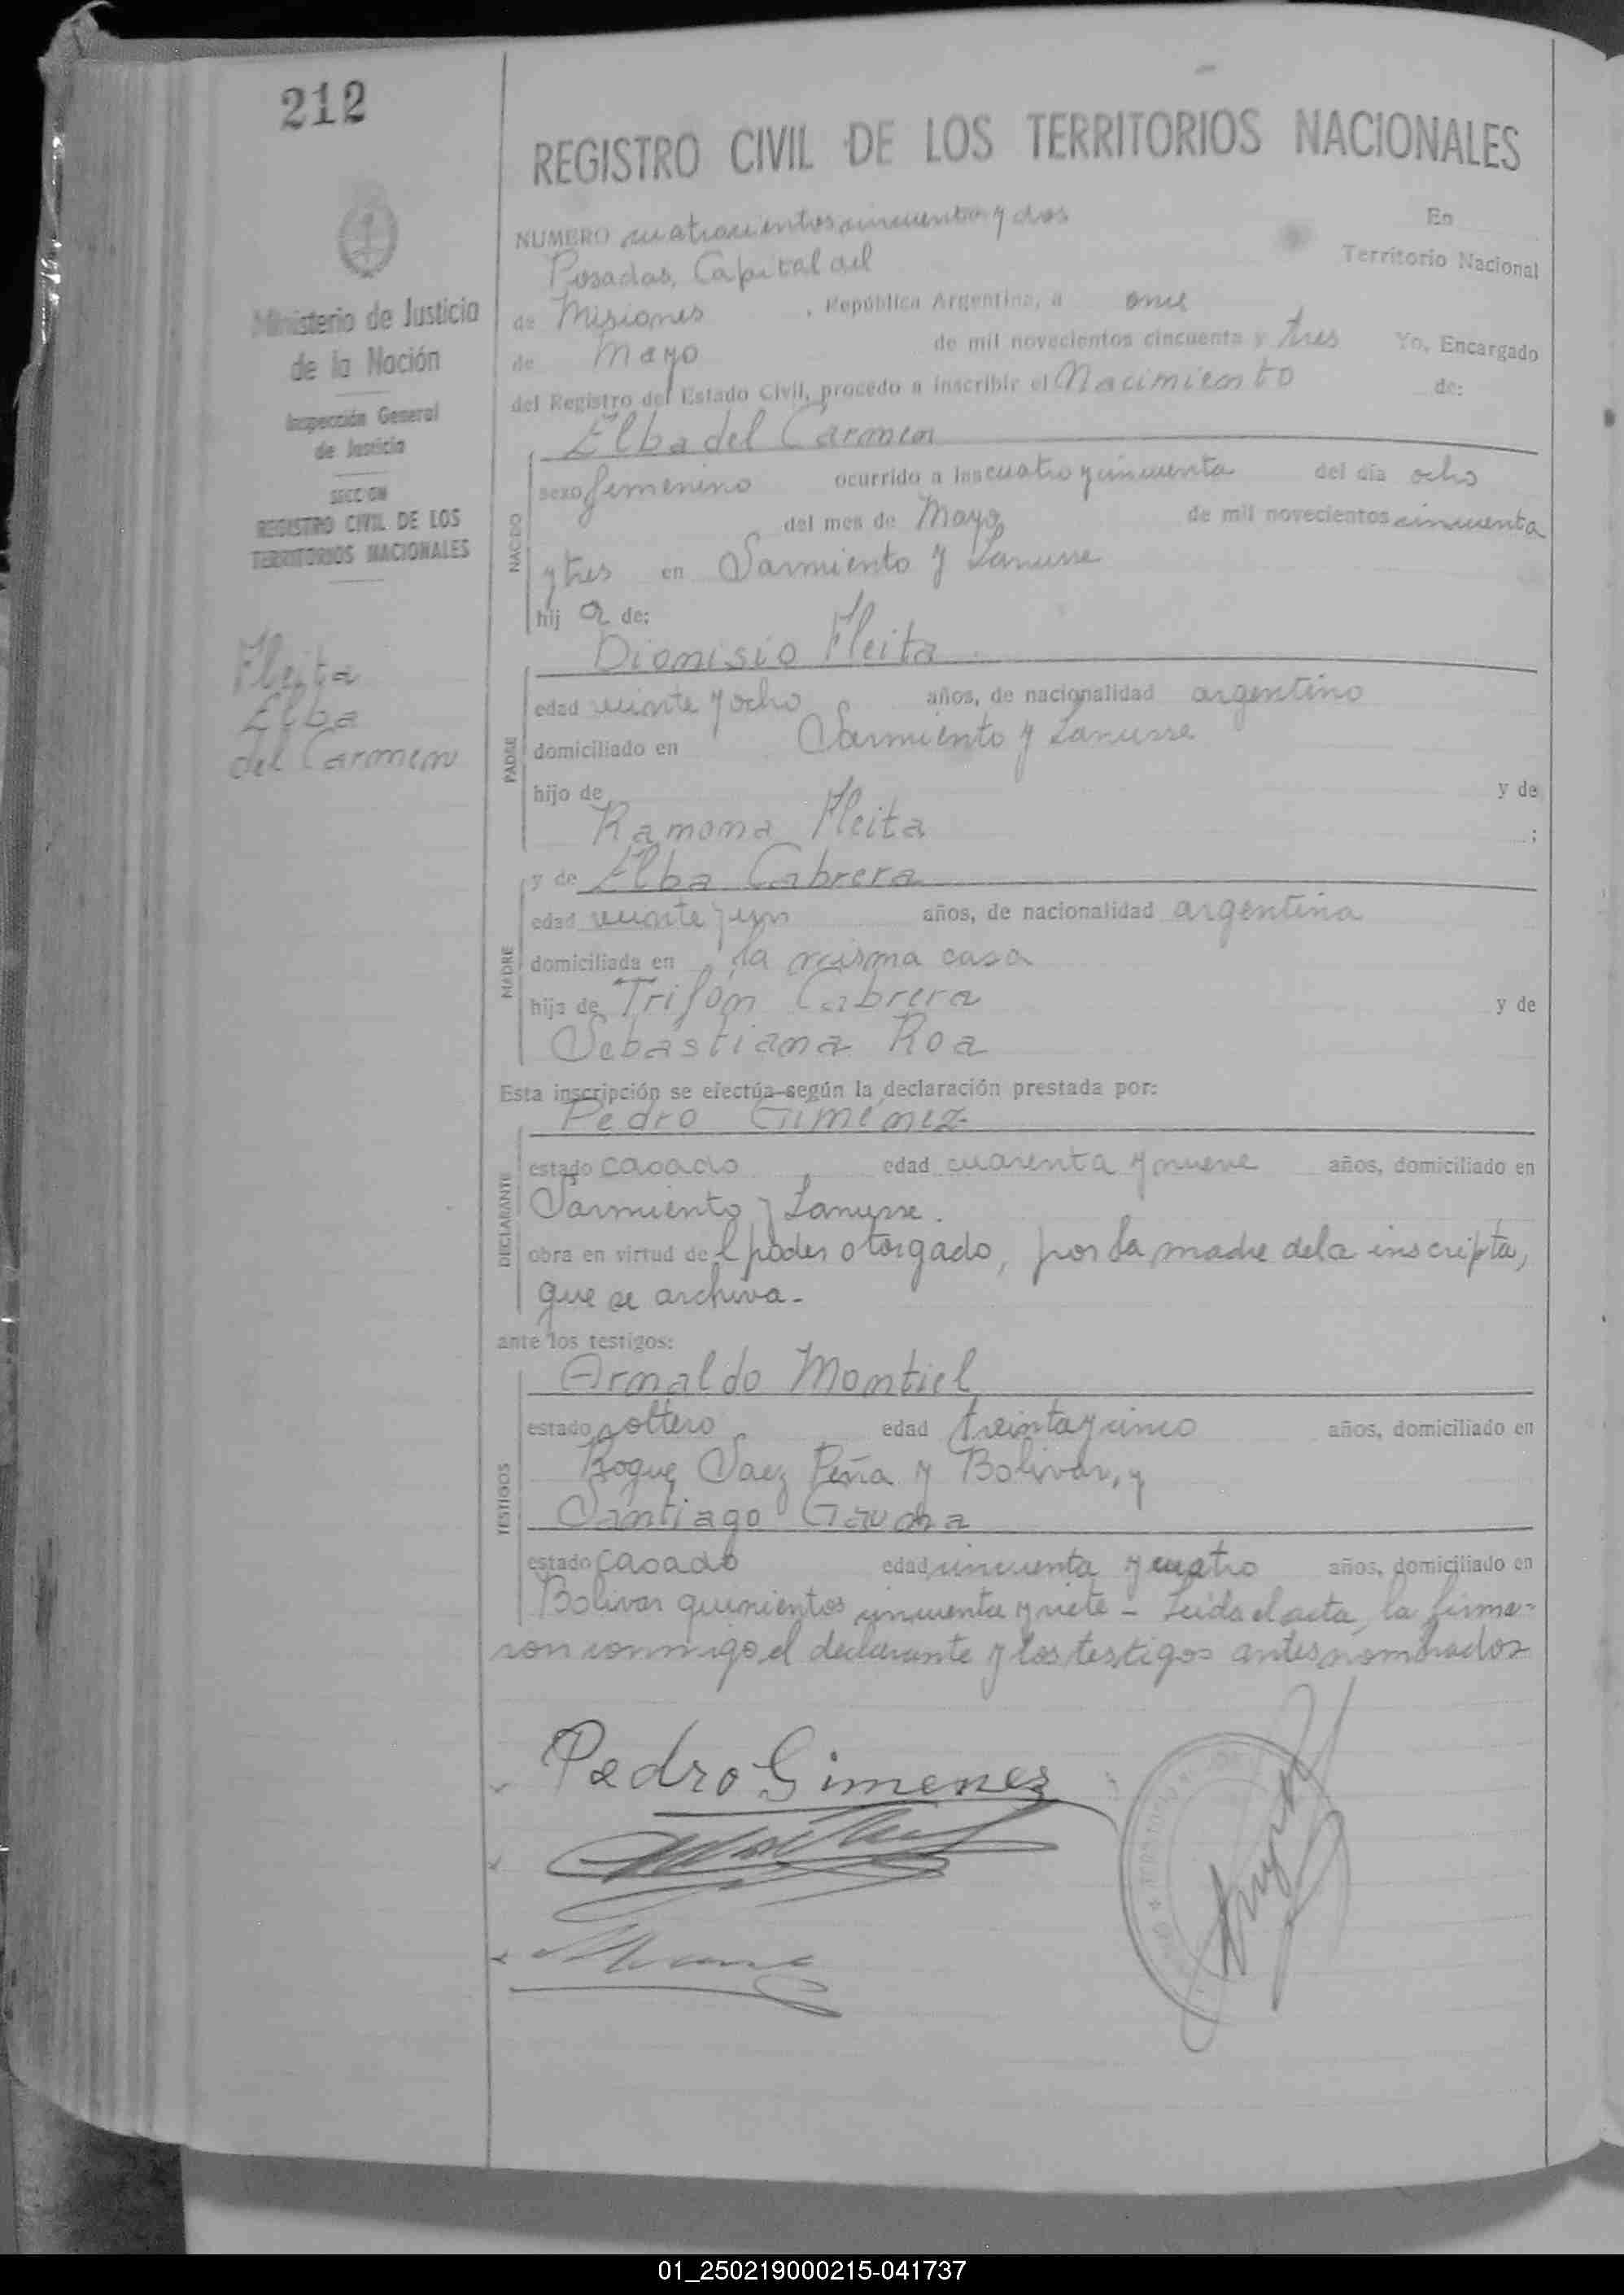 212
REGISTRO CIVIL DE LOS TERRITORIOS NACIONALES
Ministerio de Justicia
de la Nación
Inspección General
de Justicia
SECCION
REGISTRO CIVIL DE LOS
TERRITORIOS NACIONALES
Fleita
Elba
del Carmen
NUMERO cuatrocientos cincuenta y dos En
Posadas, Capital del Territorio Nacional
de Misiones, República Argentina, a once
de Mayo de mil novecientos cincuenta y tres Yo, Encargado
del Registro del Estado Civil, procedo a inscribir el Nacimiento de:
Elba del Carmen
NACIDO
sexo femenino ocurrido a las cuatro y cincuenta del día ocho
del mes de Mayo de mil novecientos cincuenta
y tres en Sarmiento y Lanusse
hij a de:
Dionisio Fleita
PADRE
edad veinte y ocho años, de nacionalidad argentino
domiciliado en Sarmiento y Lanusse
hijo de y de
Ramona Fleita ;
y de Elba Cabrera
MADRE
edad veinte y un años, de nacionalidad argentina
domiciliada en la misma casa
hija de Trifón Cabrera y de
Sebastiana Roa
Esta inscripción se efectúa según la declaración prestada por:
Pedro Giménez
DECLARANTE
estado casado edad cuarenta y nueve años, domiciliado en
Sarmiento y Lanusse.
obra en virtud del poder otorgado, por la madre de la inscripta,
que se archiva.
ante los testigos:
Arnaldo Montiel
TESTIGOS
estado soltero edad treinta y cinco años, domiciliado en
Roque Saez Peña y Bolivar, y
Santiago
estado casado edad cincuenta y cuatro años, domiciliado en
Bolivar quinientos cincuenta y siete - Leida el acta, la firma-
ron conmigo, el declarante y los testigos antes nombrados
Pedro Gimenez
01_250219000215-041737